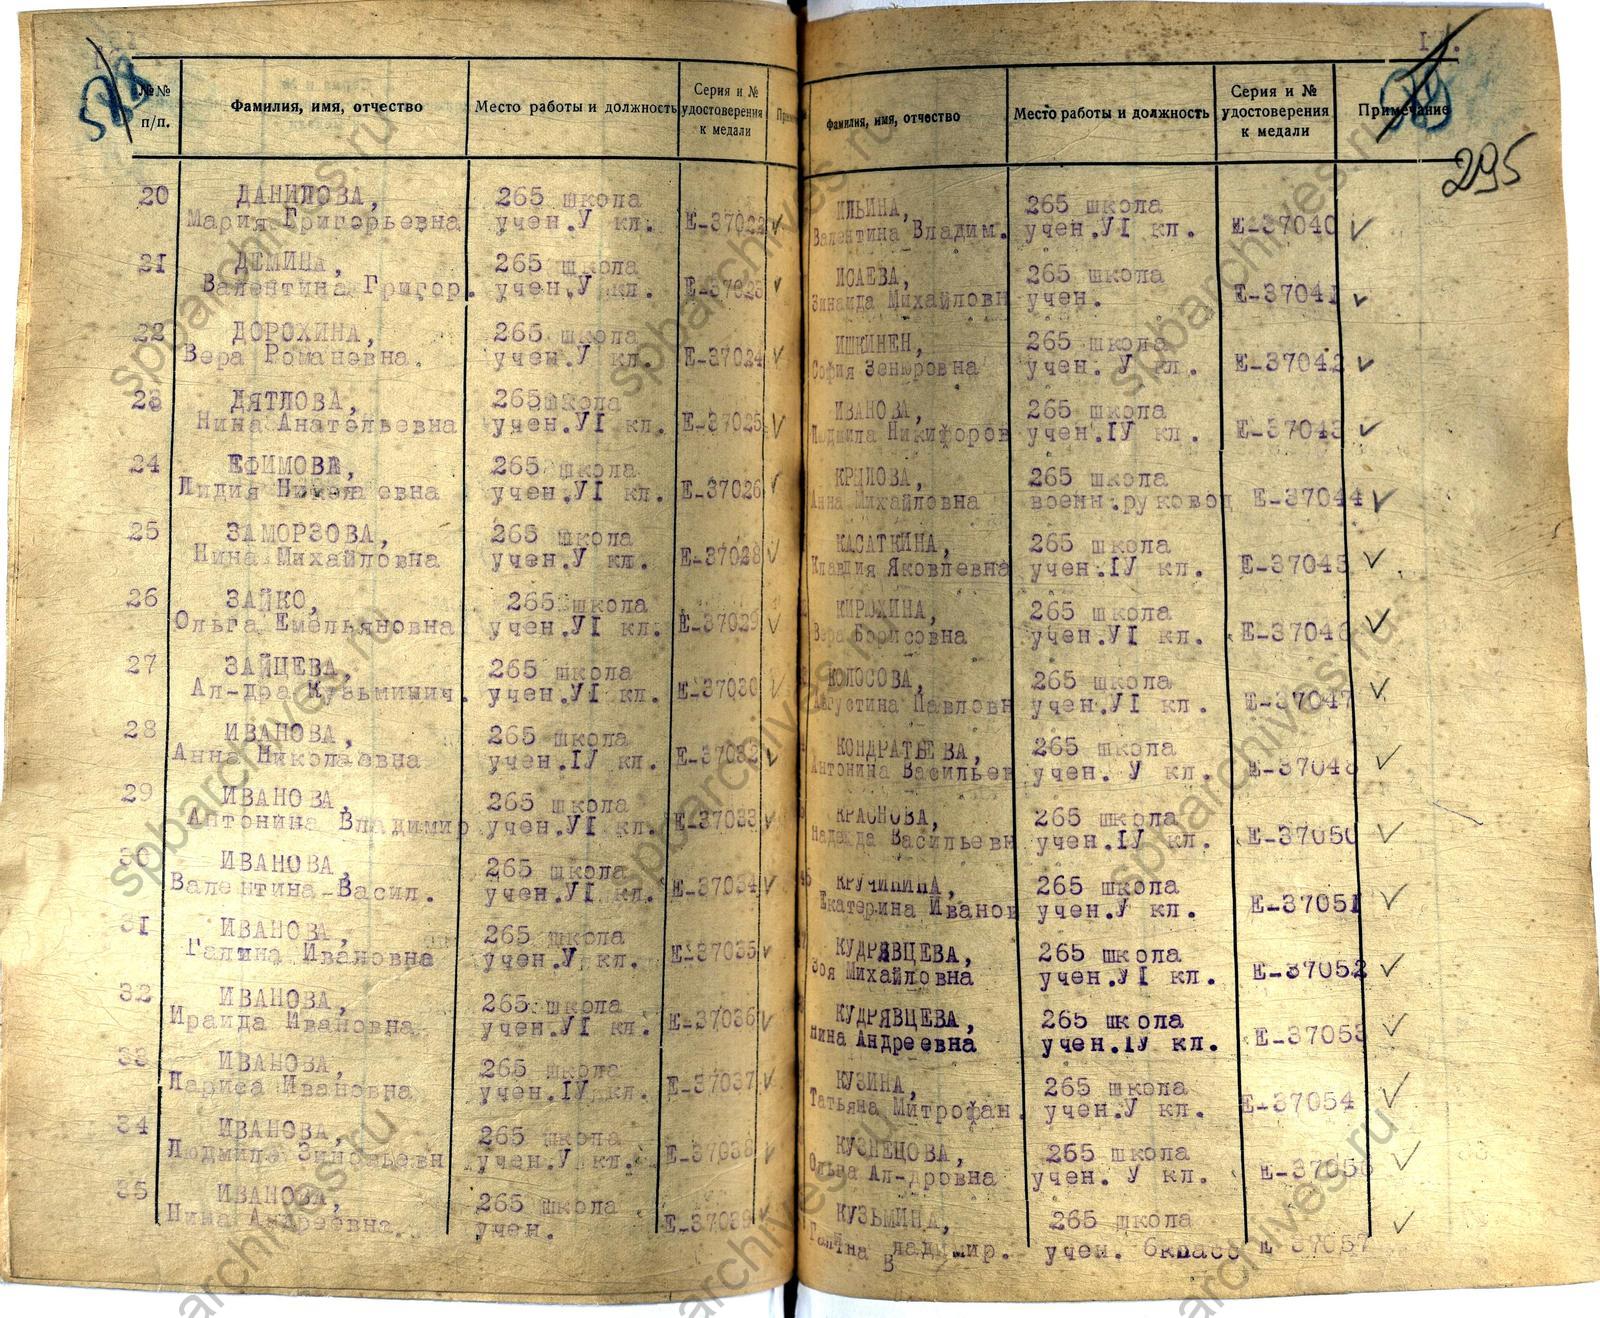 №№ п/п.
Фамилия, имя, отчество
Место работы и должность
Серия и № удостоверения к медали
20 ДАНИЛОВА, 265 школа
Мария Григорьевна учен.У кл. Е-37022
21 ДЕМИНА, 265 школа
Валентина Григор. учен.У кл. Е-37023
22 ДОРОХИНА, 265 школа
Вера Романевна. учен.У кл. Е-37024
23 ДЯТЛОВА, 265 школа
Нина Анатольевна учен.УІ кл. Е-37025
24 ЕФИМОВА, 265 школа
Лидия Николаевна учен.УІ кл. Е-37026
25 ЗАМОРЗОВА, 265 школа
Нина Михайловна учен.У кл. Е-37028
26 ЗАЙКО, 265 школа
Ольга Емельяновна учен.УІ кл. Е-37029
27 ЗАЙЦЕВА, 265 школа
Ал-дра Кузьминич. учен.УІ кл. Е-37030
28 ИВАНОВА, 265 школа
Анна Николаевна учен.ІУ кл. Е-37032
29 ИВАНОВА, 265 школа
Антонина Владимир учен.УІ кл. Е-37033
30 ИВАНОВА, 265 школа
Валентина-Васил. учен.УІ кл. Е-37034
31 ИВАНОВА, 265 школа
Галина Ивановна учен.У кл. Е-37035
32 ИВАНОВА, 265 школа
Ираида Ивановна учен.УІ кл. Е-37036
33 ИВАНОВА, 265 школа
Лариса Ивановна учен.ІУ кл. Е-37037
34 ИВАНОВА, 265 школа
Людмила Зиновьевн учен.У кл. Е-37038
35 ИВАНОВА, 265 школа
Нина Андреевна. учен. Е-37039
Фамилия, имя, отчество
Место работы и должность
Серия и № удостоверения к медали
Примечание
295
ИЛЬИНА, 265 школа
Валентина Владим. учен.УІ кл. Е-37040
ИСАЕВА, 265 школа
Зинаида Михайловн учен. Е-37041
ИШКИНЕН, 265 школа
София учен. У кл. Е-37042
ИВАНОВА, 265 школа
Людмила Никифоров учен.ІУ кл. Е-37043
265 школа
Анна Михайловна военн.руковод Е-37044
КАСАТКИНА, 265 школа
Клавдия Яковлевна учен.ІУ кл. Е-37045
КИРЮХИНА, 265 школа
Вера Борисовна учен.УІ кл. Е-37046
КОЛОСОВА, 265 школа
Августина Павловн учен.УІ кл. Е-37047
КОНДРАТЬЕВА, 265 школа
Антонина Васильев учен. У кл. Е-37048
КРАСНОВА, 265 школа
Надежда Васильевн учен.ІУ кл. Е-37050
КРУЧИНИНА, 265 школа
Екатерина Иванов учен.У кл. Е-37051
КУДРЯВЦЕВА, 265 школа
Зоя Михайловна учен.УІ кл. Е-37052
КУДРЯВЦЕВА, 265 школа
Нина Андреевна учен.ІУ кл. Е-37053
КУЗИНА, 265 школа
Татьяна Митрофан. учен.У кл. Е-37054
КУЗНЕЦОВА, 265 школа
Ольга Ал-дровна учен. У кл.
КУЗЬМИНА, 265 школа
Галина Владимир. учен. 6класс Е 37057
spbarchives.ru